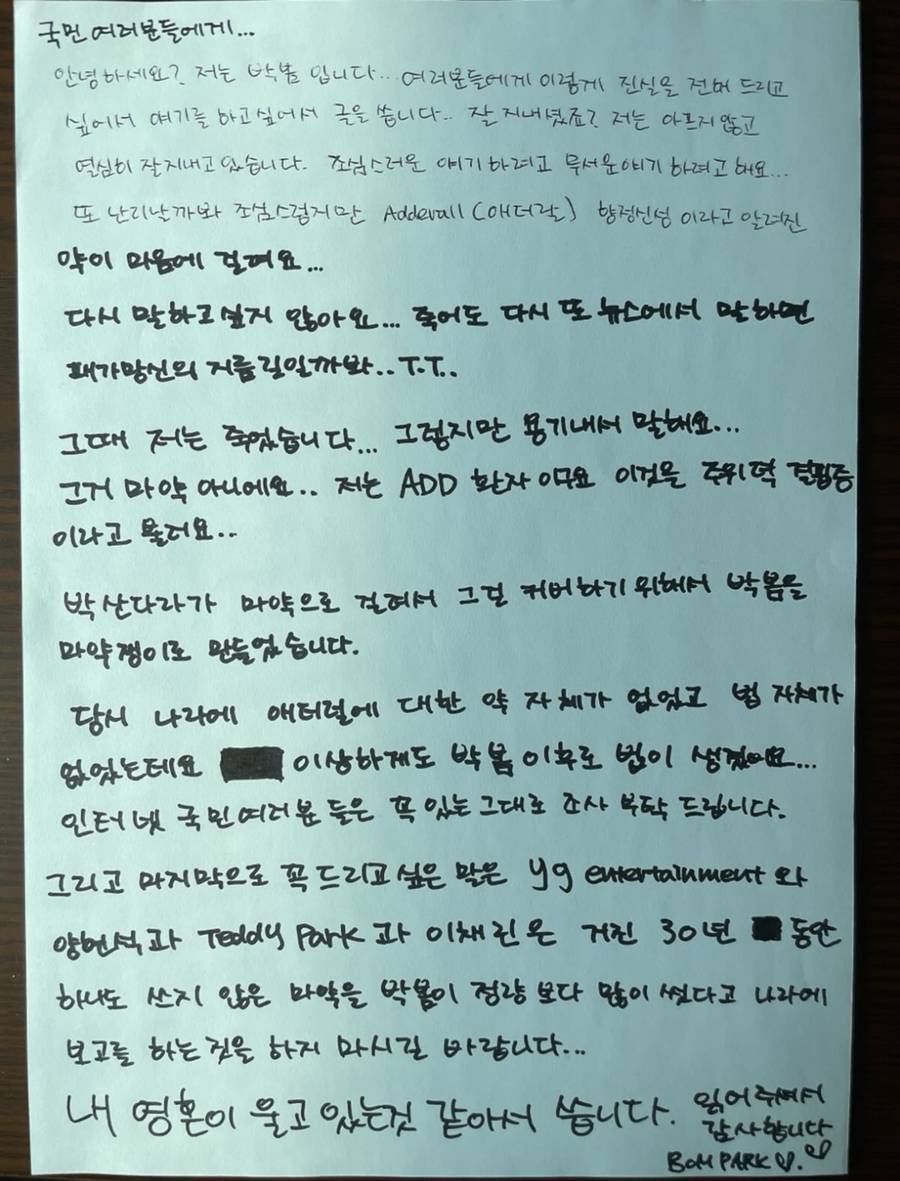 국민 여러분들에게...
안녕하세요? 저는 박봄 입니다... 여러분들에게 이렇게 진실을 전해 드리고
싶어서 얘기를 하고싶어서 글을 씁니다.. 잘 지내셨죠? 저는 아프지 않고
열심히 잘지내고 있습니다. 조심스러운 얘기 하려고 무서운얘기 하려고 해요...
또 난리날까봐 조심스럽지만 Adderall (애더랄) 향정신성 이라고 알려진
약이 마음에 걸려요...
다시 말하고싶지 않아요... 죽어도 다시 또 뉴스에서 말하면
패가망신의 지름길일까봐.. T.T..
그때 저는 죽었습니다... 그렇지만 용기내서 말해요...
그거 마약 아니에요.. 저는 ADD 환자 이구요 이것을 주위력 결핍증
이라고 불러요..
박산다라가 마약으로 걸려서 그걸 커버하기 위해서 박봄을
마약쟁이로 만들었습니다.
당시 나라에 애터럴에 대한 약 자체가 없었고 법 자체가
없었는데요 이상하게도 박봄 이후로 법이 생겼어요...
인터넷 국민여러분 들은 꼭 있는그대로 조사 부탁 드립니다.
그리고 마지막으로 꼭 드리고 싶은 말은 yg entertainment 와
양현석과 Teddy Park 과 이채린은 거진 30년 동안
하나도 쓰지 않은 마약을 박봄이 정량 보다 많이 썼다고 나라에
보고를 하는 것을 하지 마시길 바랍니다...
내 영혼이 울고 있는것 같아서 씁니다. 읽어주셔서
감사합니다
BOM PARK ♡. ♡